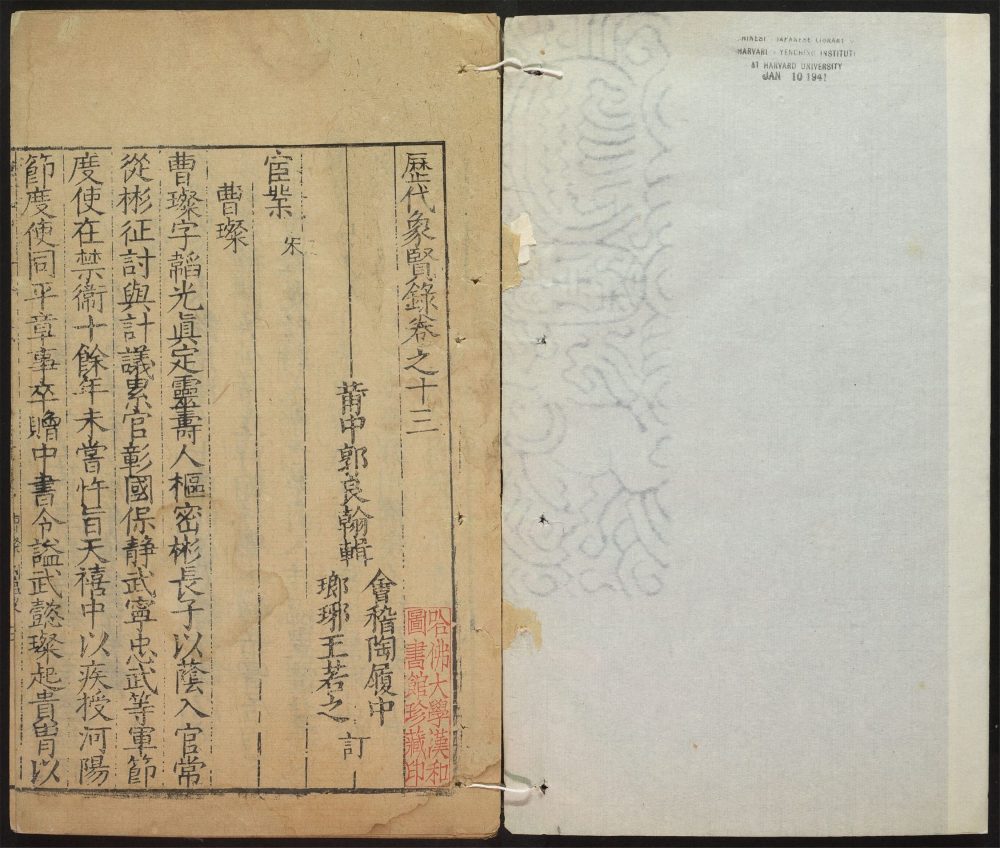 CHINESE - JAPANESE LIBRARY
HARVARD - YENCHING INSTITUTE
AT HARVARD UNIVERSITY
JAN 10 1941
歷代象賢錄卷之十三
莆中郭良翰輯
會稽陶履中
瑯琊王若之
訂
哈佛大學漢和
圖書館珍藏印
宦業
宋
曹璨
曹璨字韜光眞定靈壽人樞密彬長子以蔭入官常
從彬征討與計議累官彰國保静武寧忠武等軍節
度使在禁衛十餘年未嘗忤旨天禧中以疾授河陽
節度使同平章事卒贈中書令謚武懿璨起貴冑以